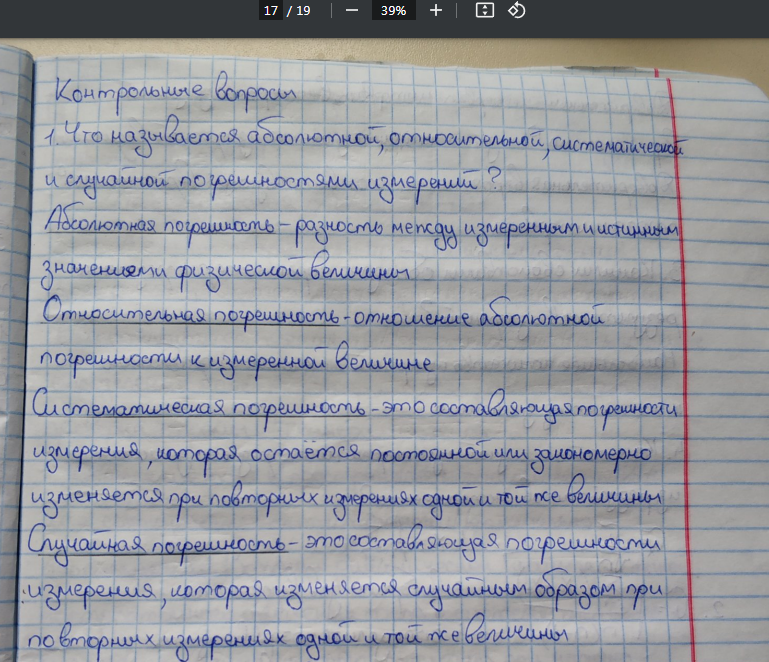 17 / 19 — 39% +
Контрольные вопросы
1. Что называется абсолютной, относительной, систематической
и случайной погрешностями измерений?
Абсолютная погрешность - разность между измеренным и истинным
значениями физической величины
Относительная погрешность - отношение абсолютной
погрешности к измеренной величине
Систематическая погрешность - это составляющая погрешности
измерения, которая остаётся постоянной или закономерно
изменяется при повторных измерениях одной и той же величины
Случайная погрешность - это составляющая погрешности
измерения, которая изменяется случайным образом при
повторных измерениях одной и той же величины